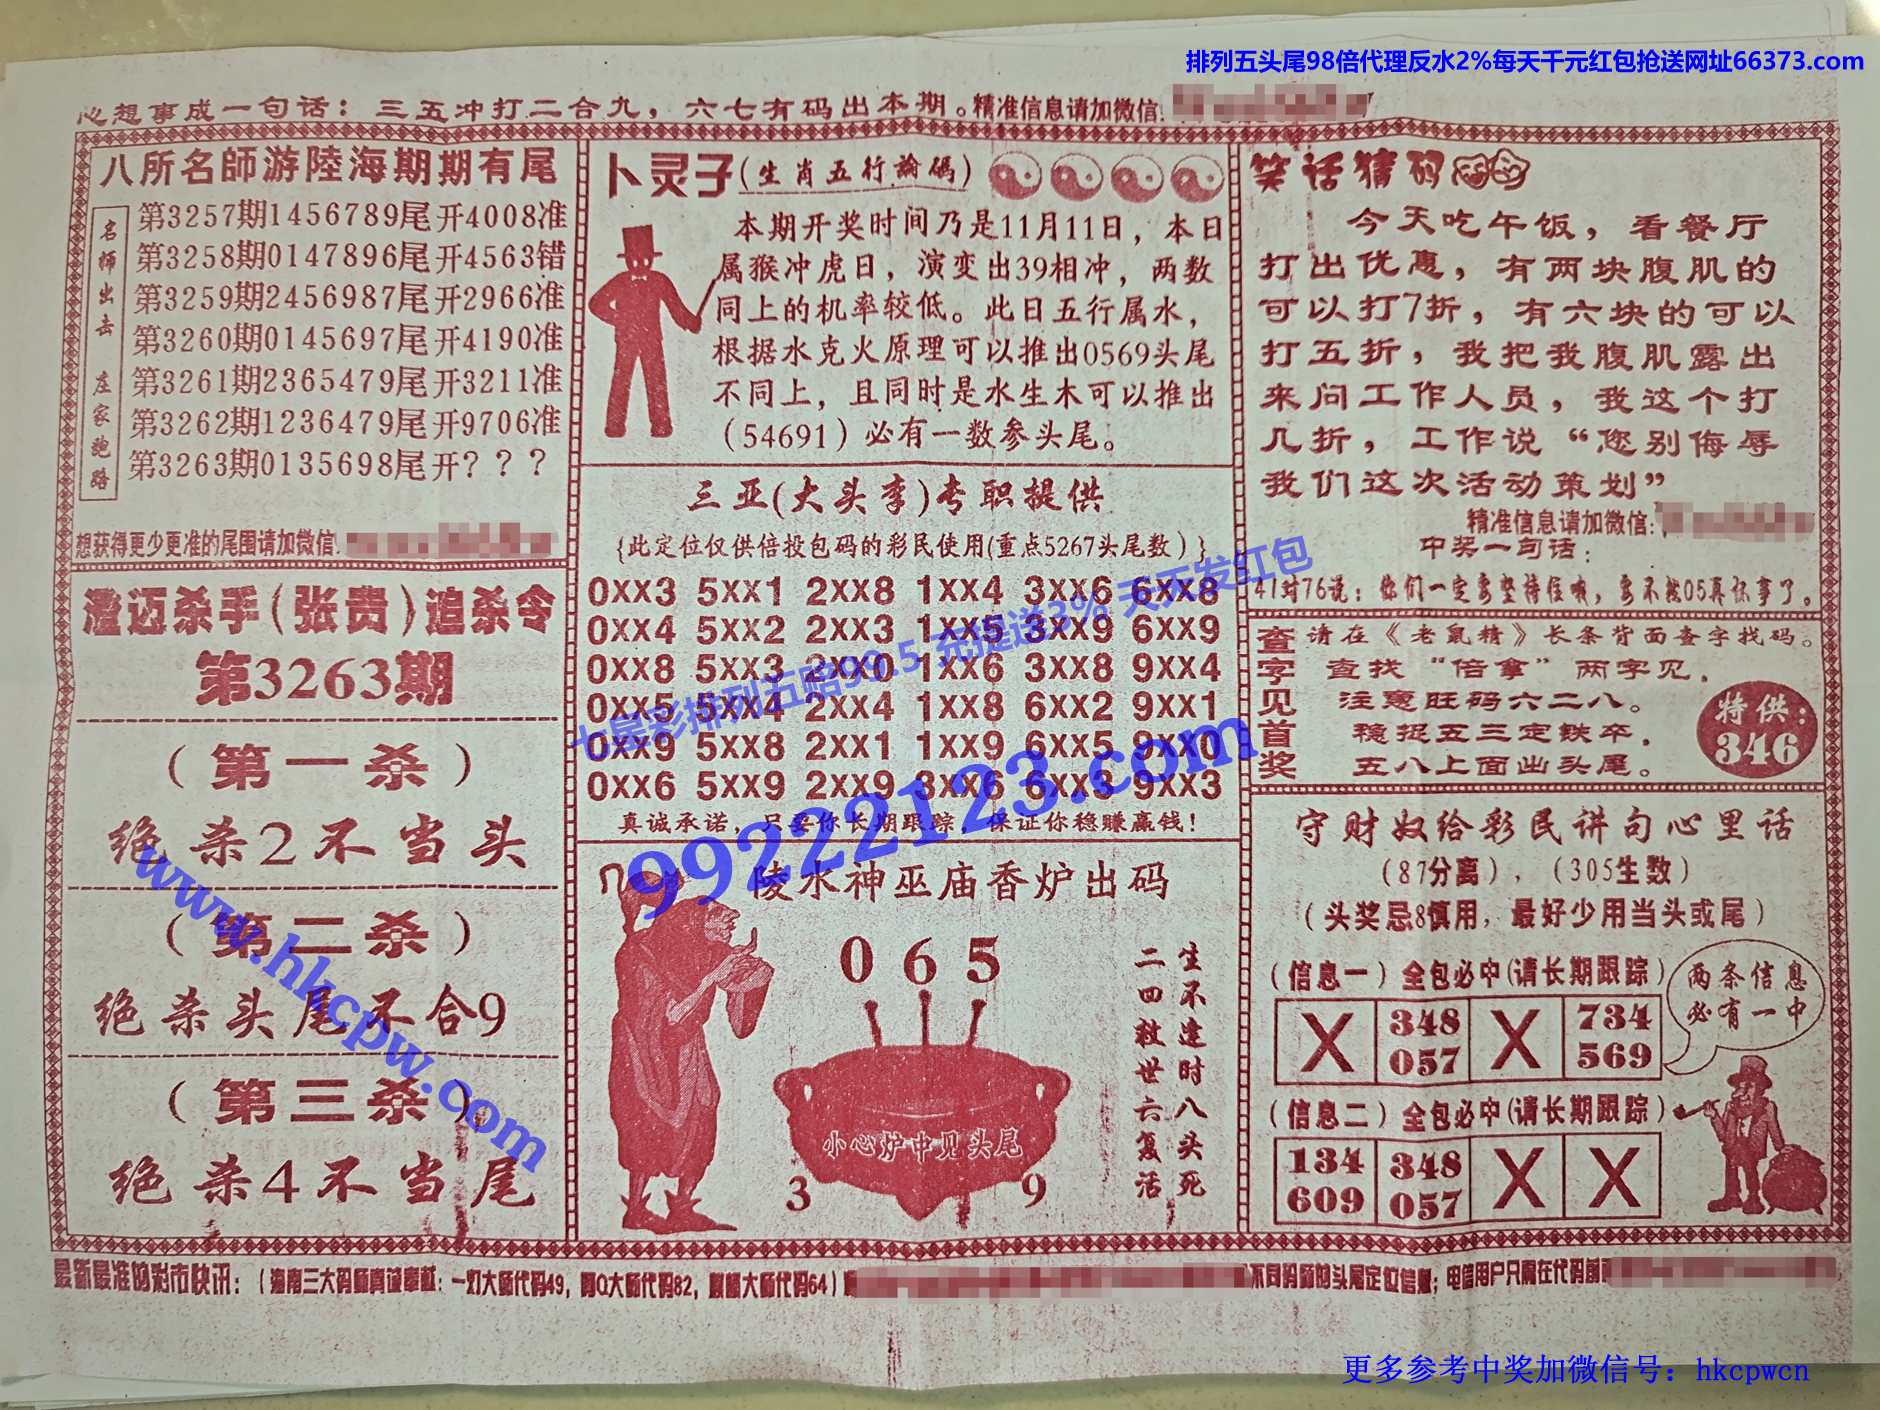 排列五头尾98倍代理反水2%每天千元红包抢送网址66373.com
心想事成一句话：三五冲打二合九，六七有码出本期。精准信息请加微信:
八所名師游陸海期期有尾
名师出击 庄家跑路
第3257期1456789尾开4008准
第3258期0147896尾开4563错
第3259期2456987尾开2966准
第3260期0145697尾开4190准
第3261期2365479尾开3211准
第3262期1236479尾开9706准
第3263期0135698尾开？？？
想获得更少更准的尾围请加微信:
澄迈杀手(张贵)追杀令
第3263期
（第一杀）
绝杀2不当头
（第二杀）
绝杀头尾不合9
（第三杀）
绝杀4不当尾
卜灵子(生肖五行論碼)
本期开奖时间乃是11月11日，本日
属猴冲虎日，演变出39相冲，两数
同上的机率较低。此日五行属水，
根据水克火原理可以推出0569头尾
不同上，且同时是水生木可以推出
（54691）必有一数参头尾。
三亚(大头李)专职提供
{此定位仅供倍投包码的彩民使用(重点5267头尾数）}
0xx3 5xx1 2xx8 1xx4 3xx6 6xx8
0xx4 5xx2 2xx3 1xx5 3xx9 6xx9
0xx8 5xx3 2xx0 1xx6 3xx8 9xx4
0xx5 5xx4 2xx4 1xx8 6xx2 9xx1
0xx9 5xx8 2xx1 1xx9 6xx5 9xx0
0xx6 5xx9 2xx9 3xx6 6xx3 9xx3
真诚承诺，只要你长期跟踪，保证你稳赚赢钱！
陵水神巫庙香炉出码
0 6 5
生不逢时八头死
二四救世六复活
小心炉中见头尾
3 9
笑话猜码
今天吃午饭，看餐厅
打出优惠，有两块腹肌的
可以打7折，有六块的可以
打五折，我把我腹肌露出
来问工作人员，我这个打
几折，工作说“您别侮辱
我们这次活动策划”
精准信息请加微信:
中奖一句话：
41对76说：你们一定要坚持住哦，要不然05真坏事了。
查字见首奖
请在《老鼠精》长条背面查字找码。
查找“倍拿”两字见，
注意旺码六二八。
稳捉五三定铁卒，
五八上面出头尾。
特供：
346
守财奴给彩民讲句心里话
（87分离），（305生数）
（头奖忌8慎用，最好少用当头或尾）
（信息一）全包必中(请长期跟踪)
X 348 057 X 734 569
两条信息
必有一中
（信息二）全包必中(请长期跟踪)
134 609 348 057 X X
最新最准的彩市快讯：（海南三大码师真诚奉献：一灯大师代码49，阿Q大师代码82，麒麟大师代码64）
不同码师的头尾定位信息；电信用户只需在代码前
七星彩排列五赔99.5 充提送3% 天天发红包
99222123.com
www.hkcpw.com
更多参考中奖加微信号：hkcpwcn